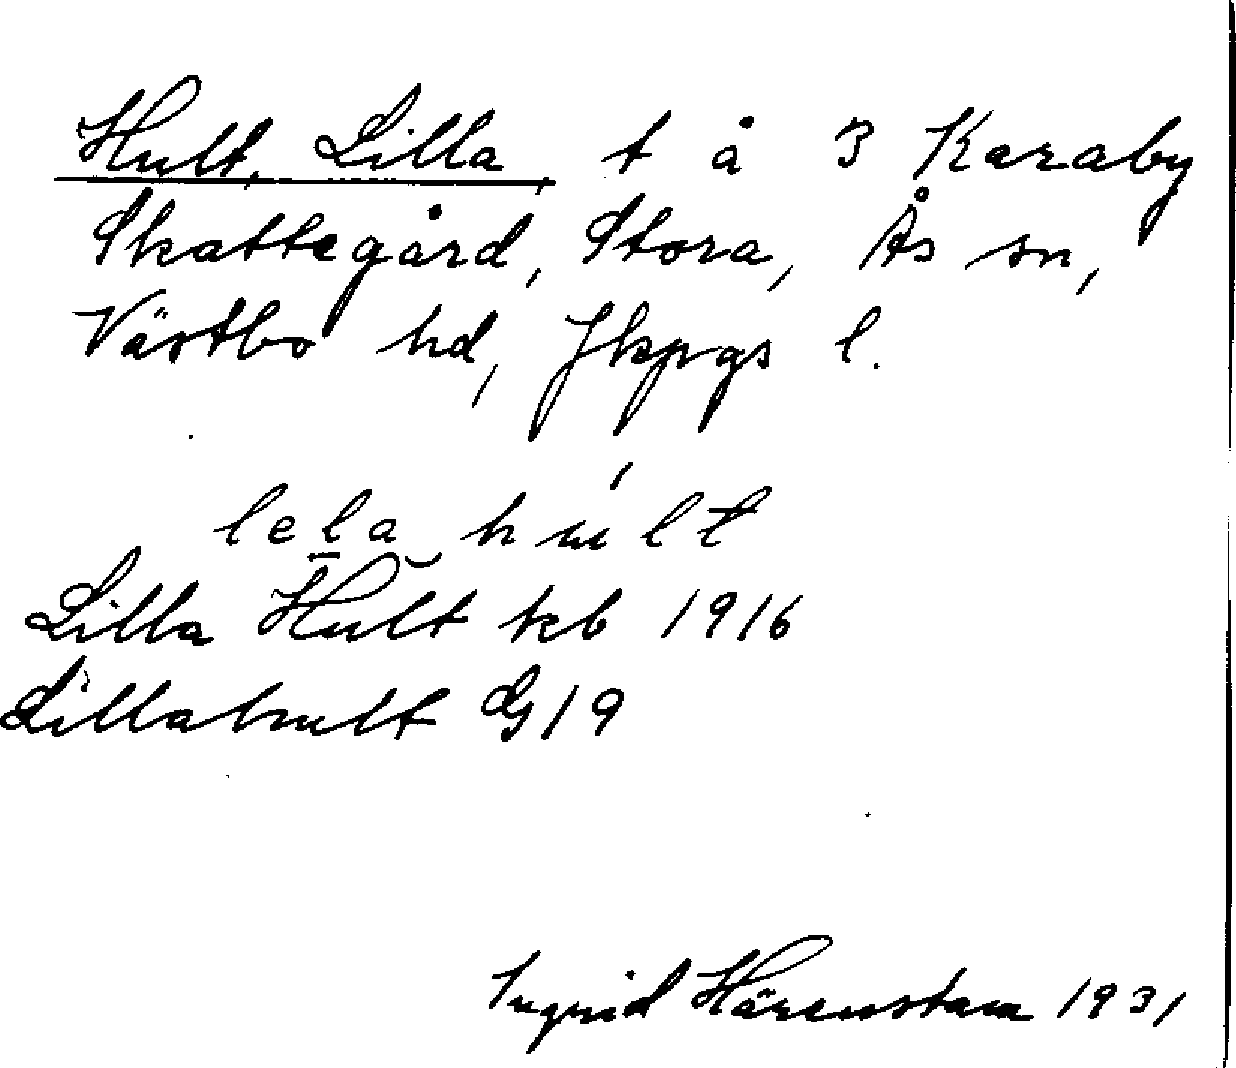 Hult, Lilla, t å 3 Karaby
Skattegård, Stora, Ås sn,
Västbo hd, Jkpgs l.
lela hult
Lilla Hult kb 1916
Lillahult G 19
Ingrid Härenstam 1931